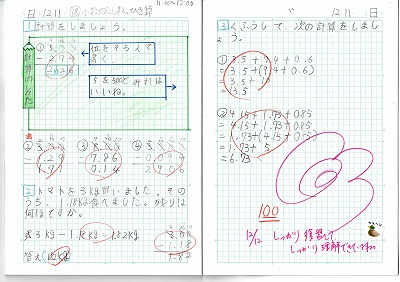 11:00~12:00
12.11 日
小数のたし算、ひき算
1 計算をしましょう。
計算のしかた
位をそろえて
書く。
5を500でみれば
いいね。
- 2.74
2 トマトを3kg買いました。その
うち、1.18kg食べました。残りは
何kgですか。
式 3kg-1.18kg=1.82kg
- 1.18
1.82
答え
12.11 日
3 くふうして、次の計算をしまし
ょう。
① 3.5+9.4+0.6
=3.5+(9.4+0.6)
=3.5+10
=13.5
② 4.15+1.73+0.85
=4.15+1.73+0.85
=1.73+(4.15+0.85)
=1.73+5
=6.73
100
12/12 しっかり復習して
しっかり理解できていますね。